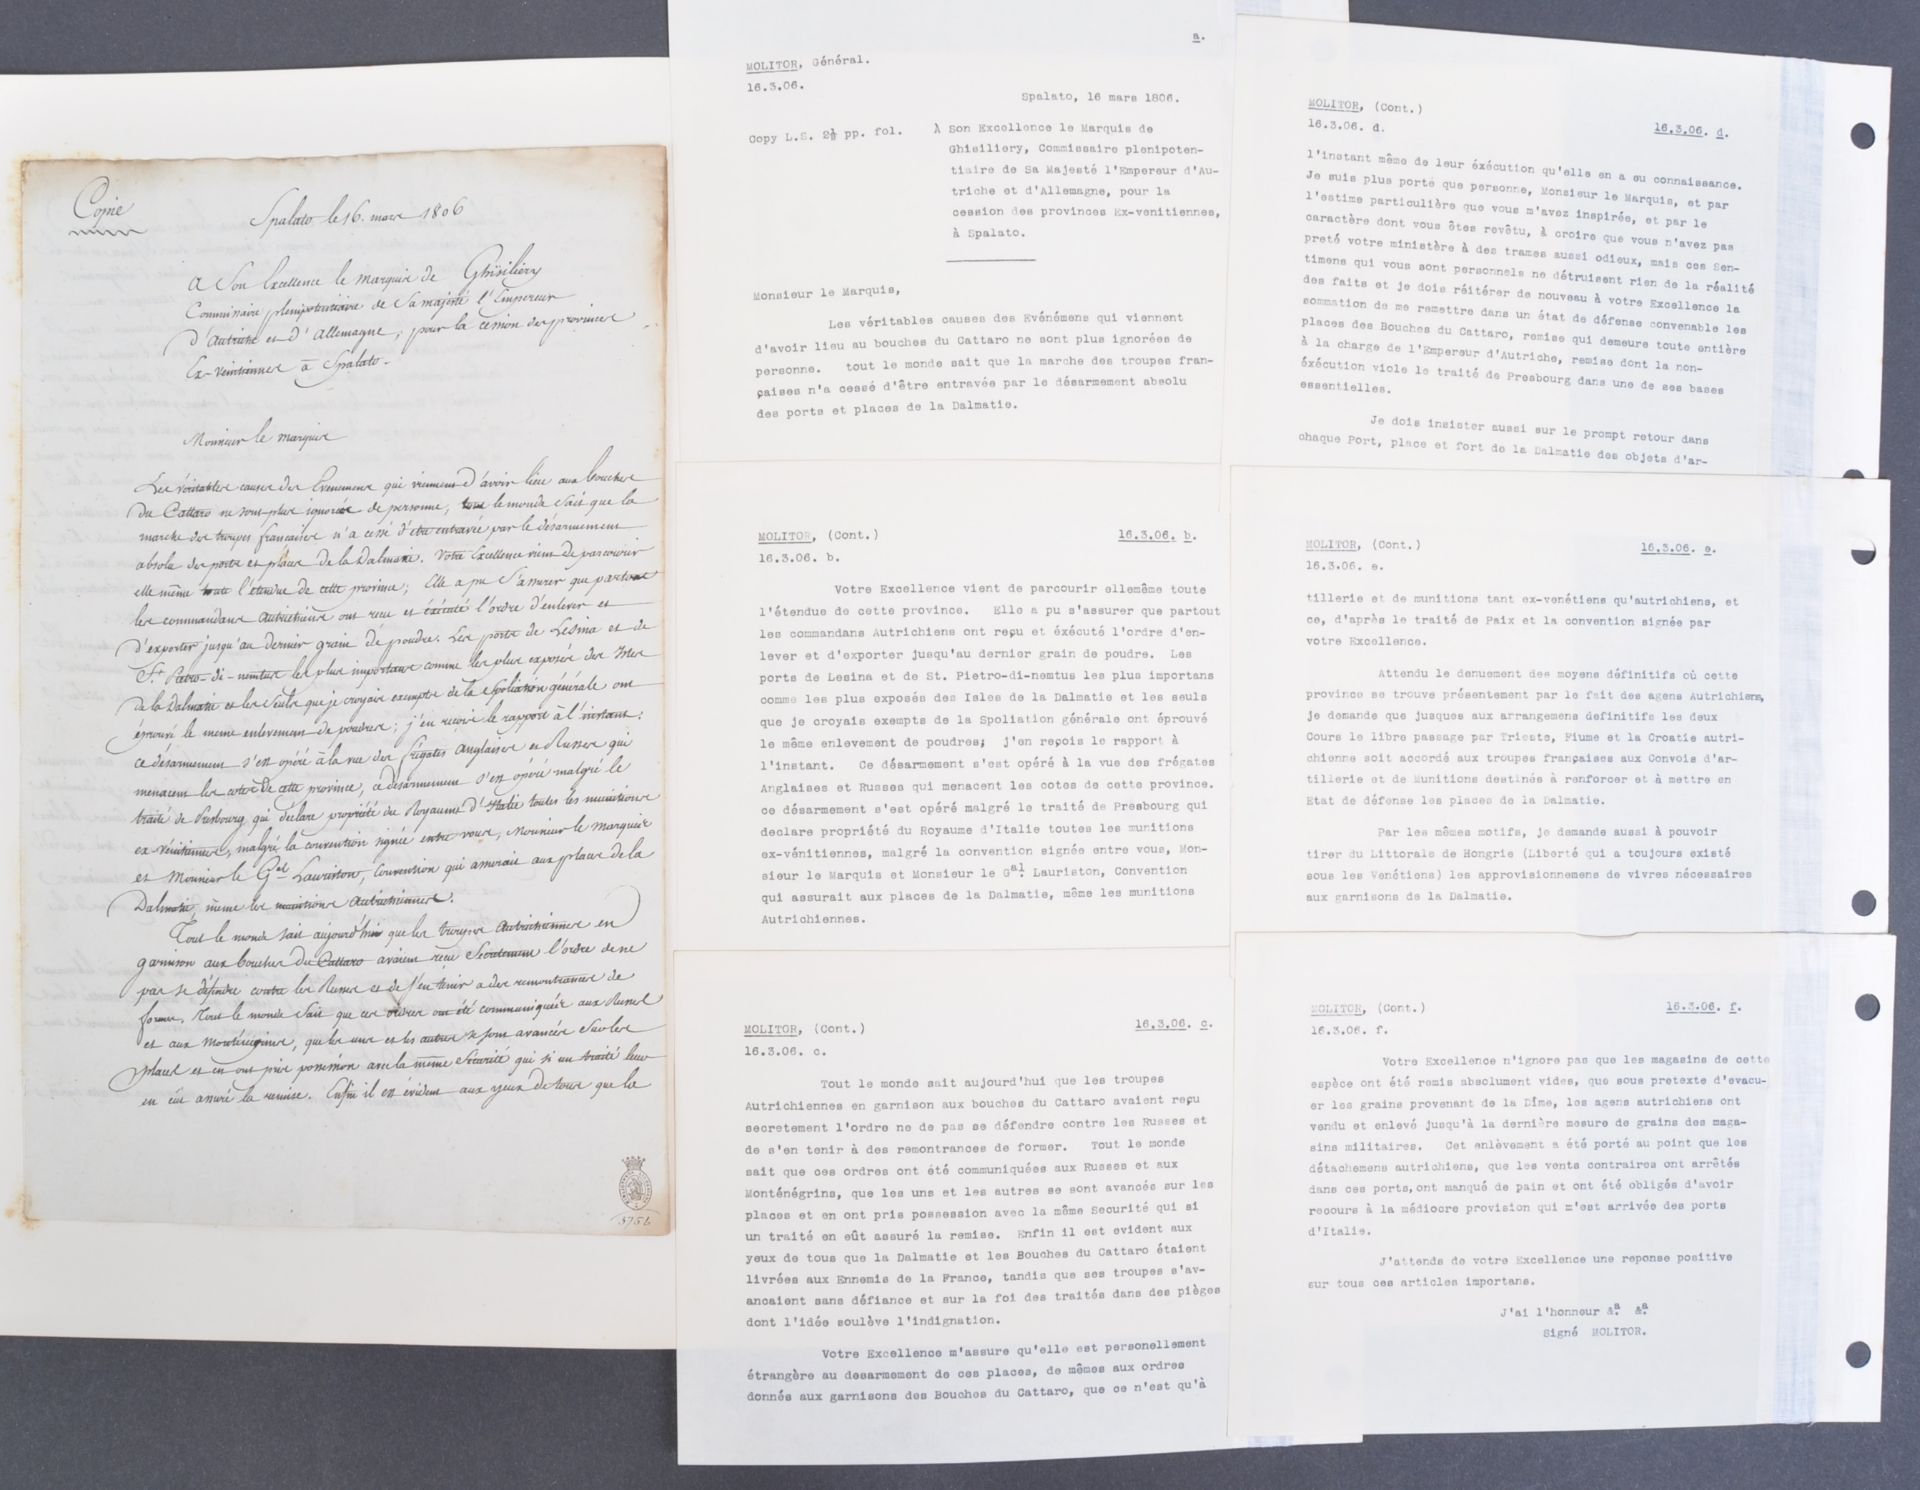 Copie
Spalato le 16. mars 1806
A Son Excellence le marquis de Ghisiliery
Commissaire plenipotentiaire de Sa majesté l'Empereur
d'Autriche et d'Allemagne, pour la cession des provinces
Ex-venitiennes à Spalato.
Monsieur le marquis
Les véritables causes des Evenemens qui viennent d'avoir lieu aux bouches
du Cattaro ne sont plus ignorées de personne, tout le monde sait que la
marche des troupes françaises n'a cessé d'être entravée par le désarmement
absolu des ports et places de la Dalmatie. Votre Excellence vient de parcourir
elle même toute l'étendue de cette province; Elle a pu s'assurer que partout
les commandans Autrichiens ont reçu et éxécuté l'ordre d'enlever et
d'exporter jusqu'au dernier grain de poudre. Les ports de Lesina et de
St. Pietro-di-nemtus les plus importans comme les plus exposés des Isles
de la Dalmatie et les Seuls que je croyais exempts de la Spoliation générale ont
éprouvé le meme enlevement de poudres; j'en reçois le rapport à l'instant:
ce désarmement s'est opéré à la vue des frégates Anglaises et Russes qui
menacent les cotes de cette province, ce désarmement s'est opéré malgré le
traité de Presbourg qui déclare propriété du Royaume d'Italie toutes les munitions
ex-vénitiennes, malgré la convention signée entre vous, Monsieur le Marquis
et Monsieur le Gal Lauriston, Convention qui assurait aux places de la
Dalmatie, même les munitions Autrichiennes.
Tout le monde sait aujourd'hui que les troupes Autrichiennes en
garnison aux bouches du Cattaro avaient reçu Secretement l'ordre de ne
pas se défendre contre les Russes et de s'en tenir a des remontrances de
former. Tout le monde Sait que ces ordres ont été communiqués aux Russes
et aux Monténégrins, que les uns et les autres se sont avancés Sur les
places et en ont pris possession avec la même Sécurité qui si un traité leur
en eût assuré la remise. Enfin il est évident aux yeux de tous que la
5756
a.
MOLITOR, Général.
16.3.06.
Spalato, 16 mars 1806.
Copy L.S. 2½ pp. fol.
À Son Excellence le Marquis de
Ghisiliery, Commissaire plenipoten-
tiaire de Sa Majesté l'Empereur d'Au-
triche et d'Allemagne, pour la
cession des provinces Ex-venitiennes,
à Spalato.
Monsieur le Marquis,
Les véritables causes des Evénémens qui viennent
d'avoir lieu au bouches du Cattaro ne sont plus ignorées de
personne. tout le monde sait que la marche des troupes fran-
çaises n'a cessé d'être entravée par le désarmement absolu
des ports et places de la Dalmatie.
MOLITOR, (Cont.)
16.3.06. b.
16.3.06. b.
Votre Excellence vient de parcourir ellemême toute
l'étendue de cette province. Elle a pu s'assurer que partout
les commandans Autrichiens ont reçu et éxécuté l'ordre d'en-
lever et d'exporter jusqu'au dernier grain de poudre. Les
ports de Lesina et de St. Pietro-di-nemtus les plus importans
comme les plus exposés des Isles de la Dalmatie et les seuls
que je croyais exempts de la Spoliation générale ont éprouvé
le même enlevement de poudres; j'en reçois le rapport à
l'instant. Ce désarmement s'est opéré à la vue des frégates
Anglaises et Russes qui menacent les cotes de cette province.
ce désarmement s'est opéré malgré le traité de Presbourg qui
declare propriété du Royaume d'Italie toutes les munitions
ex-vénitiennes, malgré la convention signée entre vous, Mon-
sieur le Marquis et Monsieur le Gal Lauriston, Convention
qui assurait aux places de la Dalmatie, même les munitions
Autrichiennes.
MOLITOR, (Cont.)
16.3.06. c.
16.3.06. c.
Tout le monde sait aujourd'hui que les troupes
Autrichiennes en garnison aux bouches du Cattaro avaient reçu
secretement l'ordre ne de pas se défendre contre les Russes et
de s'en tenir à des remontrances de former. Tout le monde
sait que ces ordres ont été communiquées aux Russes et aux
Monténégrins, que les uns et les autres se sont avancés sur les
places et en ont pris possession avec la même Securité qui si
un traité en eût assuré la remise. Enfin il est evident aux
yeux de tous que la Dalmatie et les Bouches du Cattaro étaient
livrées aux Ennemis de la France, tandis que ses troupes s'av-
ancaient sans défiance et sur la foi des traités dans des pièges
dont l'idée soulève l'indignation.
Votre Excellence m'assure qu'elle est personellement
étrangère au desarmement de ces places, de mêmes aux ordres
donnés aux garnisons des Bouches du Cattaro, que ce n'est qu'à
MOLITOR, (Cont.)
16.3.06. d.
16.3.06. d.
l'instant même de leur éxécution qu'elle en a eu connaissance.
Je suis plus porté que personne, Monsieur le Marquis, et par
l'estime particulière que vous m'avez inspirée, et par le
caractère dont vous êtes revêtu, à croire que vous n'avez pas
preté votre ministère à des trames aussi odieux, mais ces Sen-
timens qui vous sont personnels ne détruisent rien de la réalité
des faits et je dois réitérer de nouveau à votre Excellence la
sommation de me remettre dans un état de défense convenable les
places des Bouches du Cattaro, remise qui demeure toute entière
à la charge de l'Empereur d'Autriche, remise dont la non-
éxécution viole le traité de Presbourg dans une de ses bases
essentielles.
Je dois insister aussi sur le prompt retour dans
chaque Port, place et fort de la Dalmatie des objets d'ar-
MOLITOR, (Cont.)
16.3.06. e.
16.3.06. e.
tillerie et de munitions tant ex-venétiens qu'autrichiens, et
ce, d'après le traité de Paix et la convention signée par
votre Excellence.
Attendu le denuement des moyens définitifs où cette
province se trouve présentement par le fait des agens Autrichiens,
je demande que jusques aux arrangemens definitifs les deux
Cours le libre passage par Trieste, Fiume et la Croatie autri-
chienne soit accordé aux troupes françaises aux Convois d'ar-
tillerie et de Munitions destinés à renforcer et à mettre en
Etat de défense les places de la Dalmatie.
Par les mêmes motifs, je demande aussi à pouvoir
tirer du Littorale de Hongrie (Liberté qui a toujours existé
sous les Venétiens) les approvisionnemens de vivres nécessaires
aux garnisons de la Dalmatie.
MOLITOR, (Cont.)
16.3.06. f.
16.3.06. f.
Votre Excellence n'ignore pas que les magasins de cette
espèce ont été remis absolument vides, que sous pretexte d'evacu-
er les grains provenant de la Dîme, les agens autrichiens ont
vendu et enlevé jusqu'à la dernière mesure de grains des maga-
sins militaires. Cet enlèvement a été porté au point que les
détachemens autrichiens, que les vents contraires ont arrêtés
dans ces ports, ont manqué de pain et ont été obligés d'avoir
recours à la médiocre provision qui m'est arrivée des ports
d'Italie.
J'attends de votre Excellence une reponse positive
sur tous ces articles importans.
J'ai l'honneur &a. &a.
Signé MOLITOR.